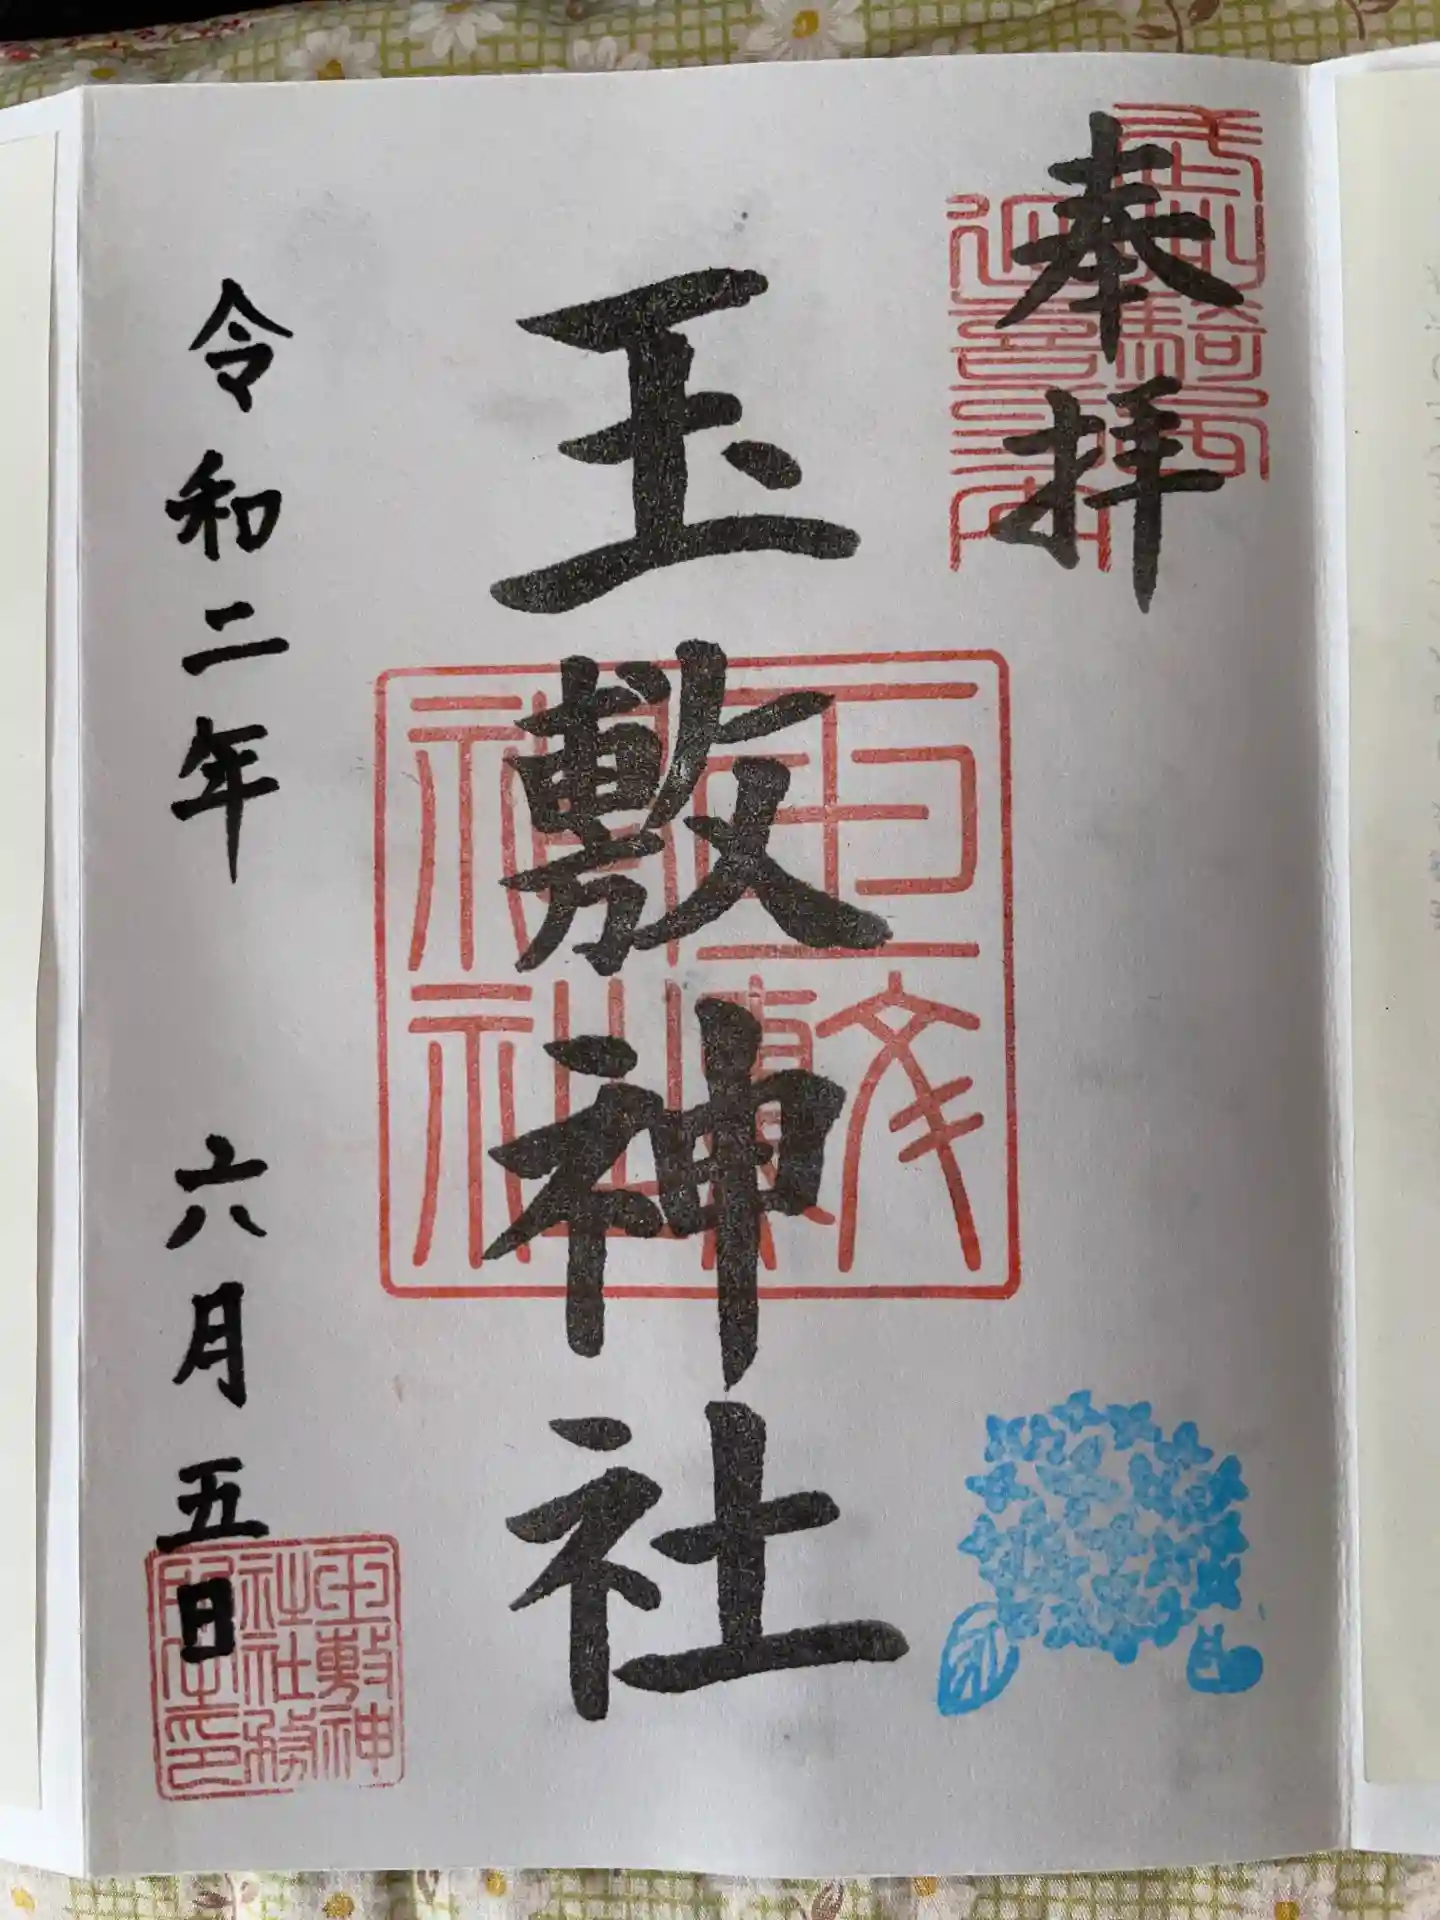 奉拝
玉敷神社
令和二年 六月五日
玉敷神
社社務
所之印